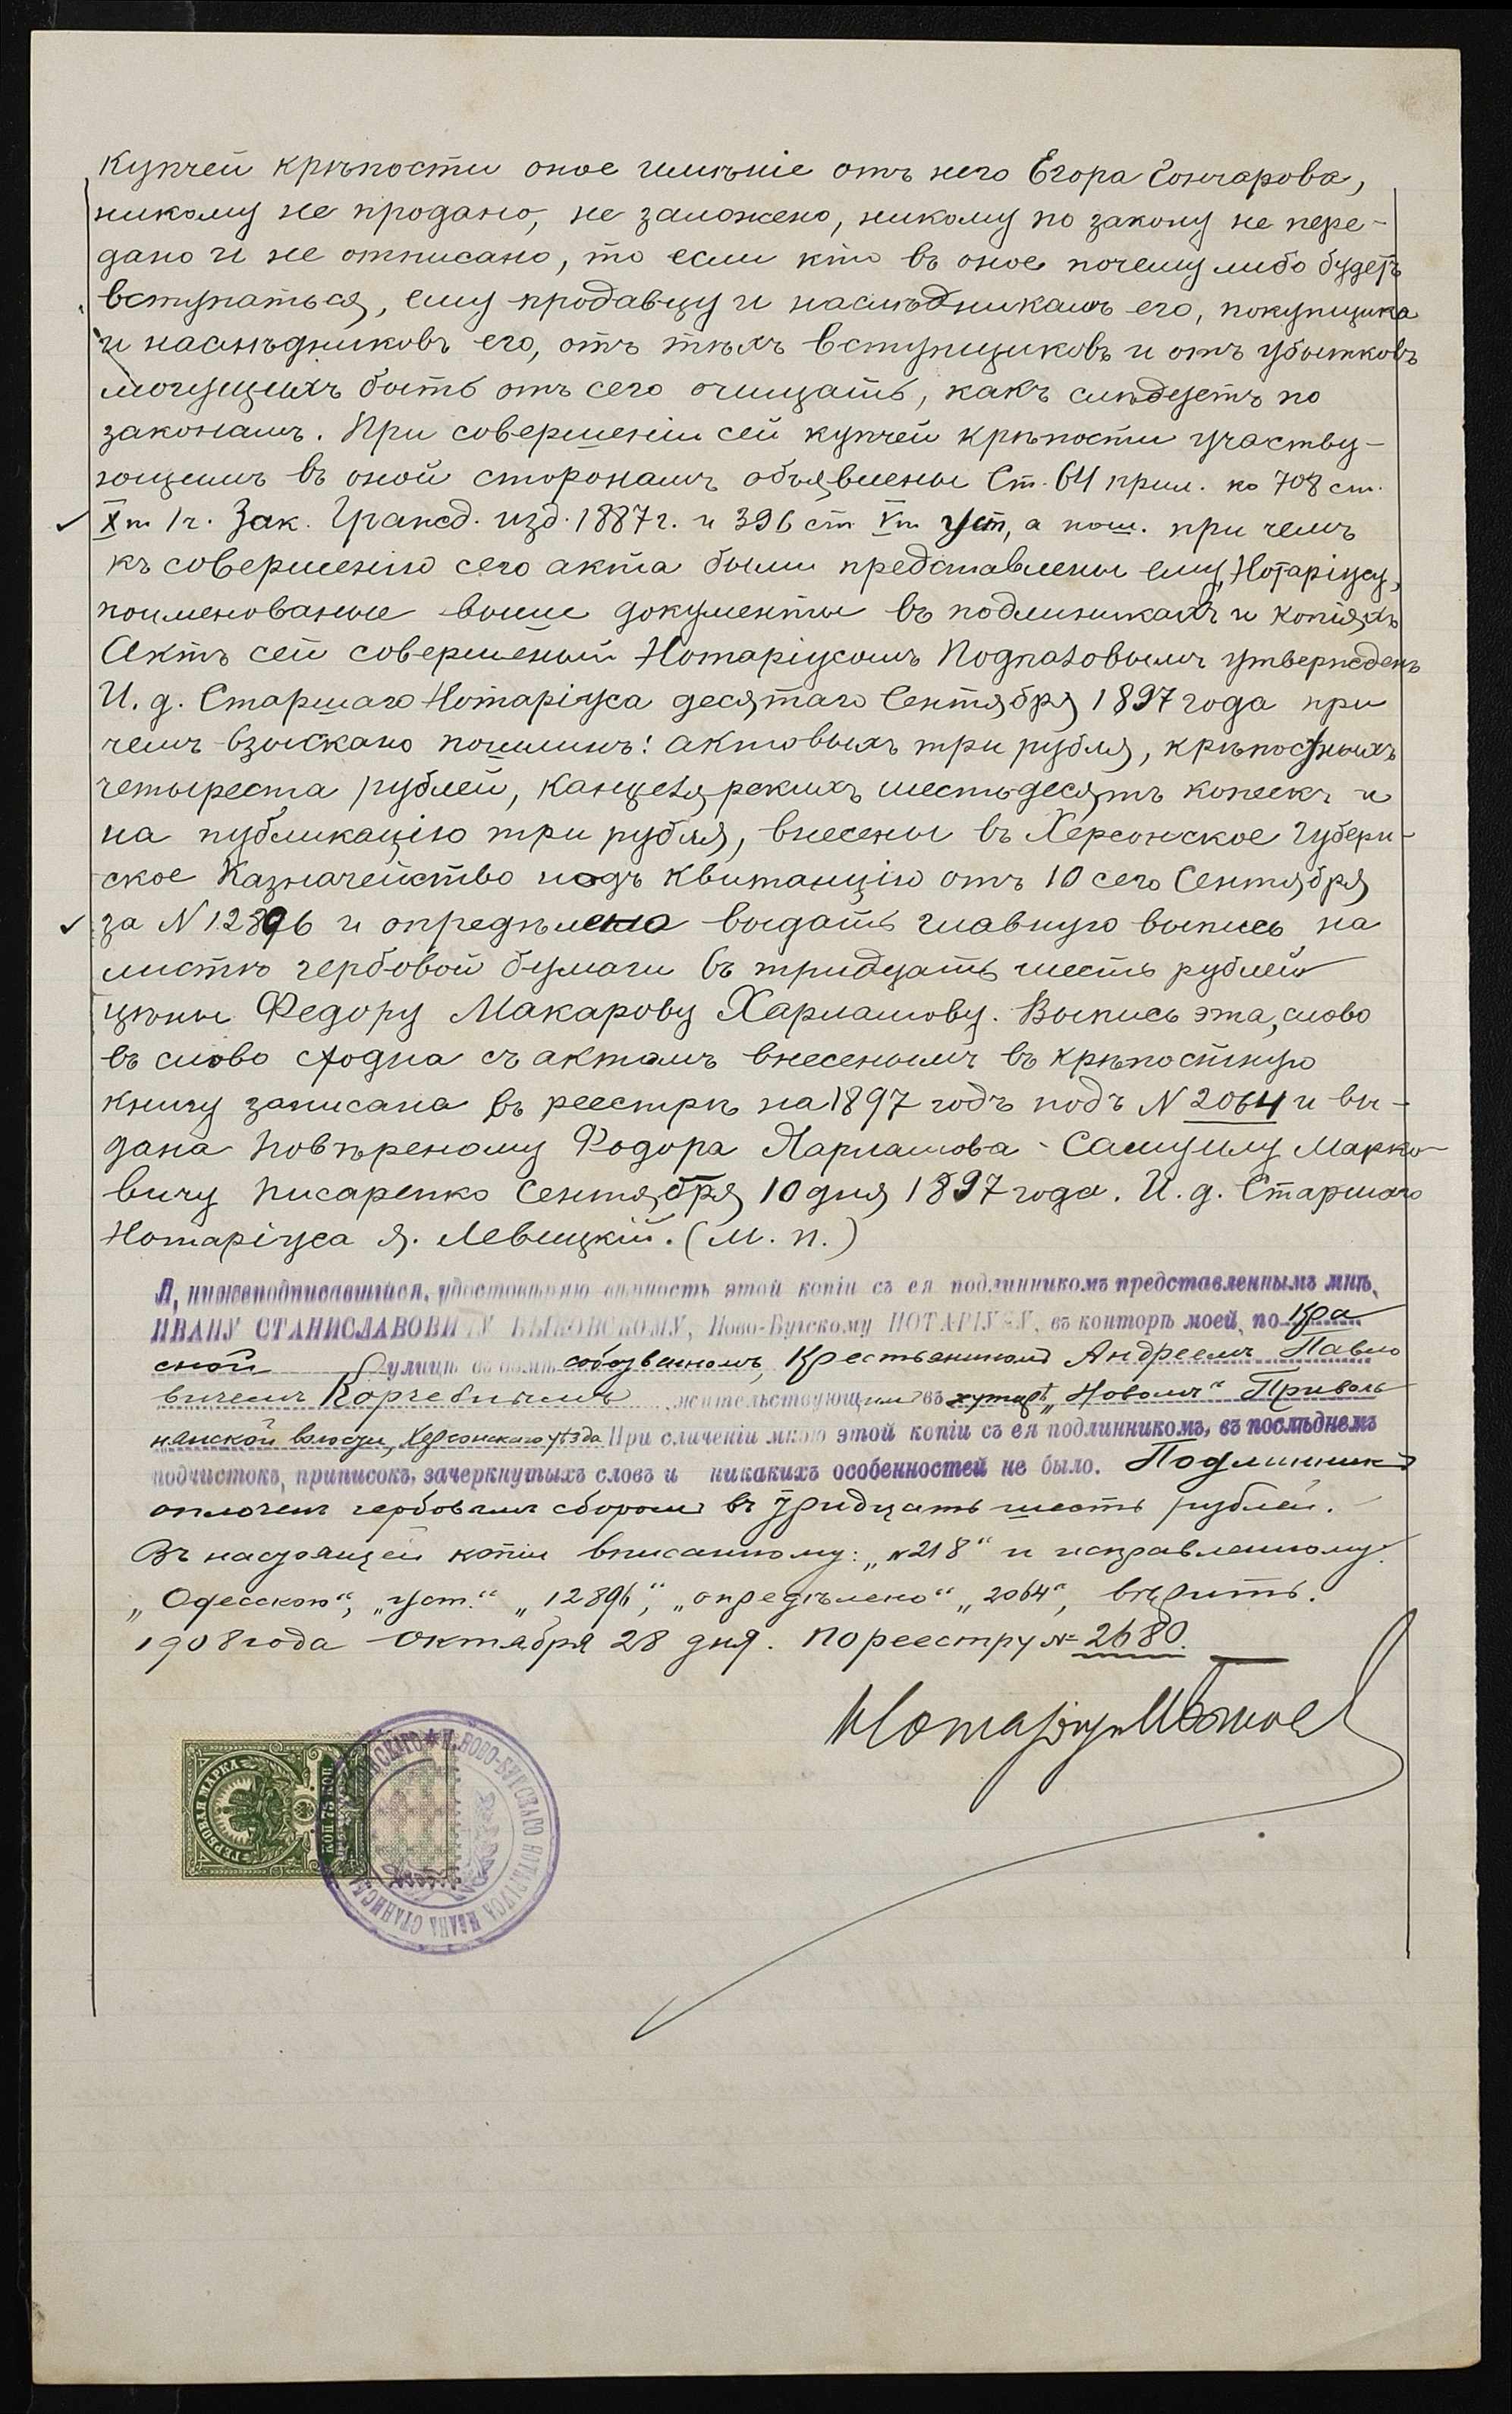 купчей крѣпости оное имѣніе отъ него Егора Гончарова,
никому не продано, не заложено, никому по закону не пере-
дано и не отписано, то если кто въ оное почему либо будетъ
вступаться, ему продавцу и наслѣдникамъ его, покупщика
и наслѣдниковъ его, отъ тѣхъ вступщиковъ и отъ убытковъ
могущихъ быть отъ сего очищать, какъ слѣдуетъ по
законамъ. При совершеніи сей купчей крѣпости участву-
ющимъ въ оной сторонамъ объявлены Ст. 64 прил. ко 708 ст.
X т. 1 ч. Зак. Гражд. изд. 1887 г. и 396 ст. V т. уст, а пош. при чемъ
къ совершенію сего акта были представлены ему, Нотаріусу,
поименованые выше документы въ подлиникахъ и копіяхъ
Актъ сей совершеный Нотаріусомъ Подпаловымъ утвержденъ
И. д. Старшаго Нотаріуса десятаго Сентября 1897 года при
чемъ взыскано пошлинъ: актовыхъ три рубля, крѣпостныхъ
четыреста рублей, канцелярскихъ шестьдесятъ копеекъ и
на публикацію три рубля, внесены въ Херсонское Губерн-
ское Казначейство подъ квитанцію отъ 10 сего Сентября
за N 12896 и опредѣлено выдать главную выпись на
листѣ гербовой бумаги въ тридцать шесть рублей
цѣны Федору Макарову Харлашову. Выпись эта, слово
въ слово сходна съ актомъ внесенымъ въ крѣпостную
книгу записана въ реестрѣ на 1897 годъ подъ N 2064 и вы-
дана повѣреному Федора Харлашова - Самуилу Марко-
вичу Писаренко Сентября 10 дня 1897 года. И. д. Старшаго
Нотаріуса Я. Левицкій. (М. п.)
Я, нижеподписавшійся, удостовѣряю вѣрность этой копіи съ ея подлинникомъ представленнымъ мнѣ,
ИВАНУ СТАНИСЛАВОВИЧУ БЫКОВСКОМУ, Ново-Бугскому НОТАРІУСУ, въ конторѣ моей, по Кра
сной улицѣ въ домѣ собственномъ, Крестьяниномъ Андреемъ Павло
вичемъ жительствующимъ въ хуторѣ „Новомъ“ Приволь
нянской волости, Херсонскаго уѣзда При сличеніи мною этой копіи съ ея подлинникомъ, въ послѣднемъ
подчистокъ, приписокъ, зачеркнутыхъ словъ и никакихъ особенностей не было. Подлинникъ
оплоченъ гербовымъ сборомъ въ тридцать шесть рублей.
Въ настоящей копіи вписанному: „N 218“ и исправленному:
„Одесскою“, „уст.“ „12896“, „опредѣлено“ „2064“, вѣрить.
1908 года Октября 28 дня. По реестру № 2680.
Нотаріусъ
ГЕРБОВАЯ МАРКА
75 КОП
НОВО-БУГСКАГО НОТАРІУСА ИВАНА СТАНИСЛА